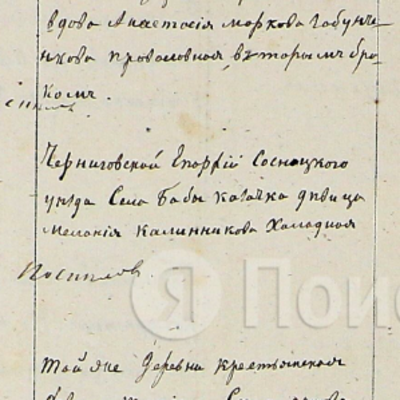 вдова Анастасія Маркова Габунче-
нкова православная, вторымъ бра-
комъ.
Черниговской Епархій Сосницкого
уезда Села Бабы казачка девица
Меланія Калинникова Халадная
Той же Деревни крестьянская
Я Пои